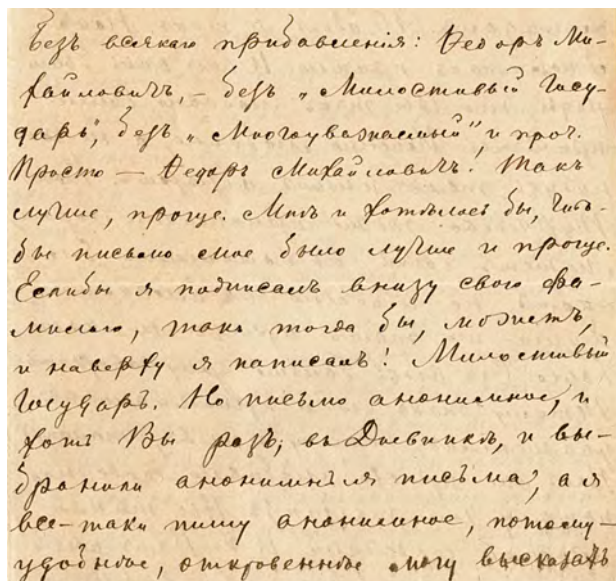 Безъ всякаго прибавленія: Ѳедоръ Ми-
хайловичъ, — безъ „Милостивый Госу-
дарь", безъ „Многоуважаемый", и проч.
Просто — Ѳедоръ Михайловичъ! Такъ
лучше, проще. Мнѣ и хотѣлось бы, что-
бы письмо мое было лучше и проще.
Еслибы я подписалъ внизу свою фа-
милію, такъ тогда бы, можетъ,
и наверху я написалъ: Милостивый
Государь. Но письмо анонимное, и
хоть Вы разъ, въ Дневникѣ, и вы-
бранили анонимныя письма, а я
все-таки пишу анонимное, потому-
удобнѣе, откровеннѣе могу высказать